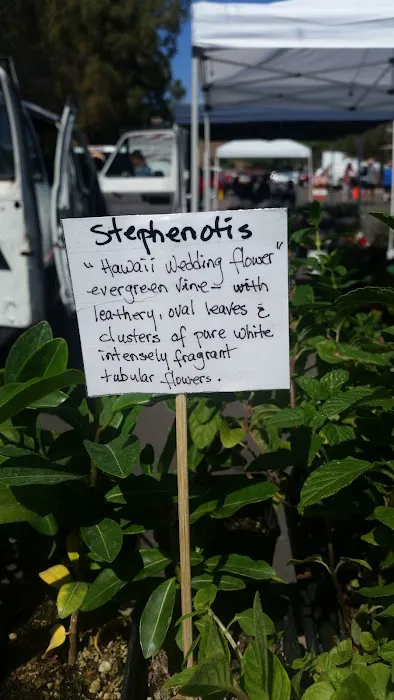 Stephenotis
"Hawaii Wedding flower"
evergreen vine - with
leathery, oval leaves &
clusters of pure white
intensely fragrant
tubular flowers.